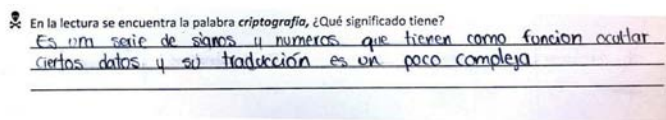 En la lectura se encuentra la palabra criptografía, ¿Qué significado tiene?
Es um serie de signos y numeros que tienen como funcion ocultar
ciertos datos y su traducción es un poco compleja